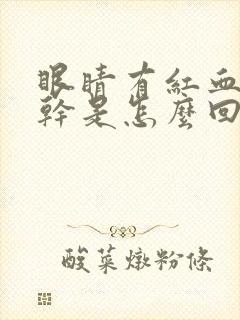 眼睛有紅血
幹是怎麼回
酸菜燉粉條